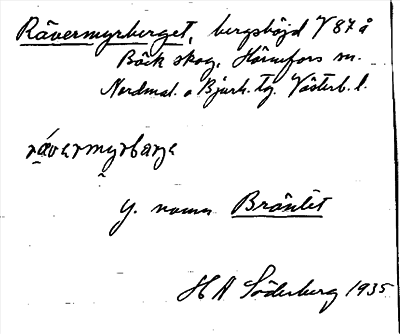 Rävermyrberget, bergshöjd V 87 å
Bäck skog, Hörnefors sn.
Nordmal. o Bjurh. tg. Västerb. l.
rávərmyrbarje
y. namn Brånet
H A Söderberg 1935